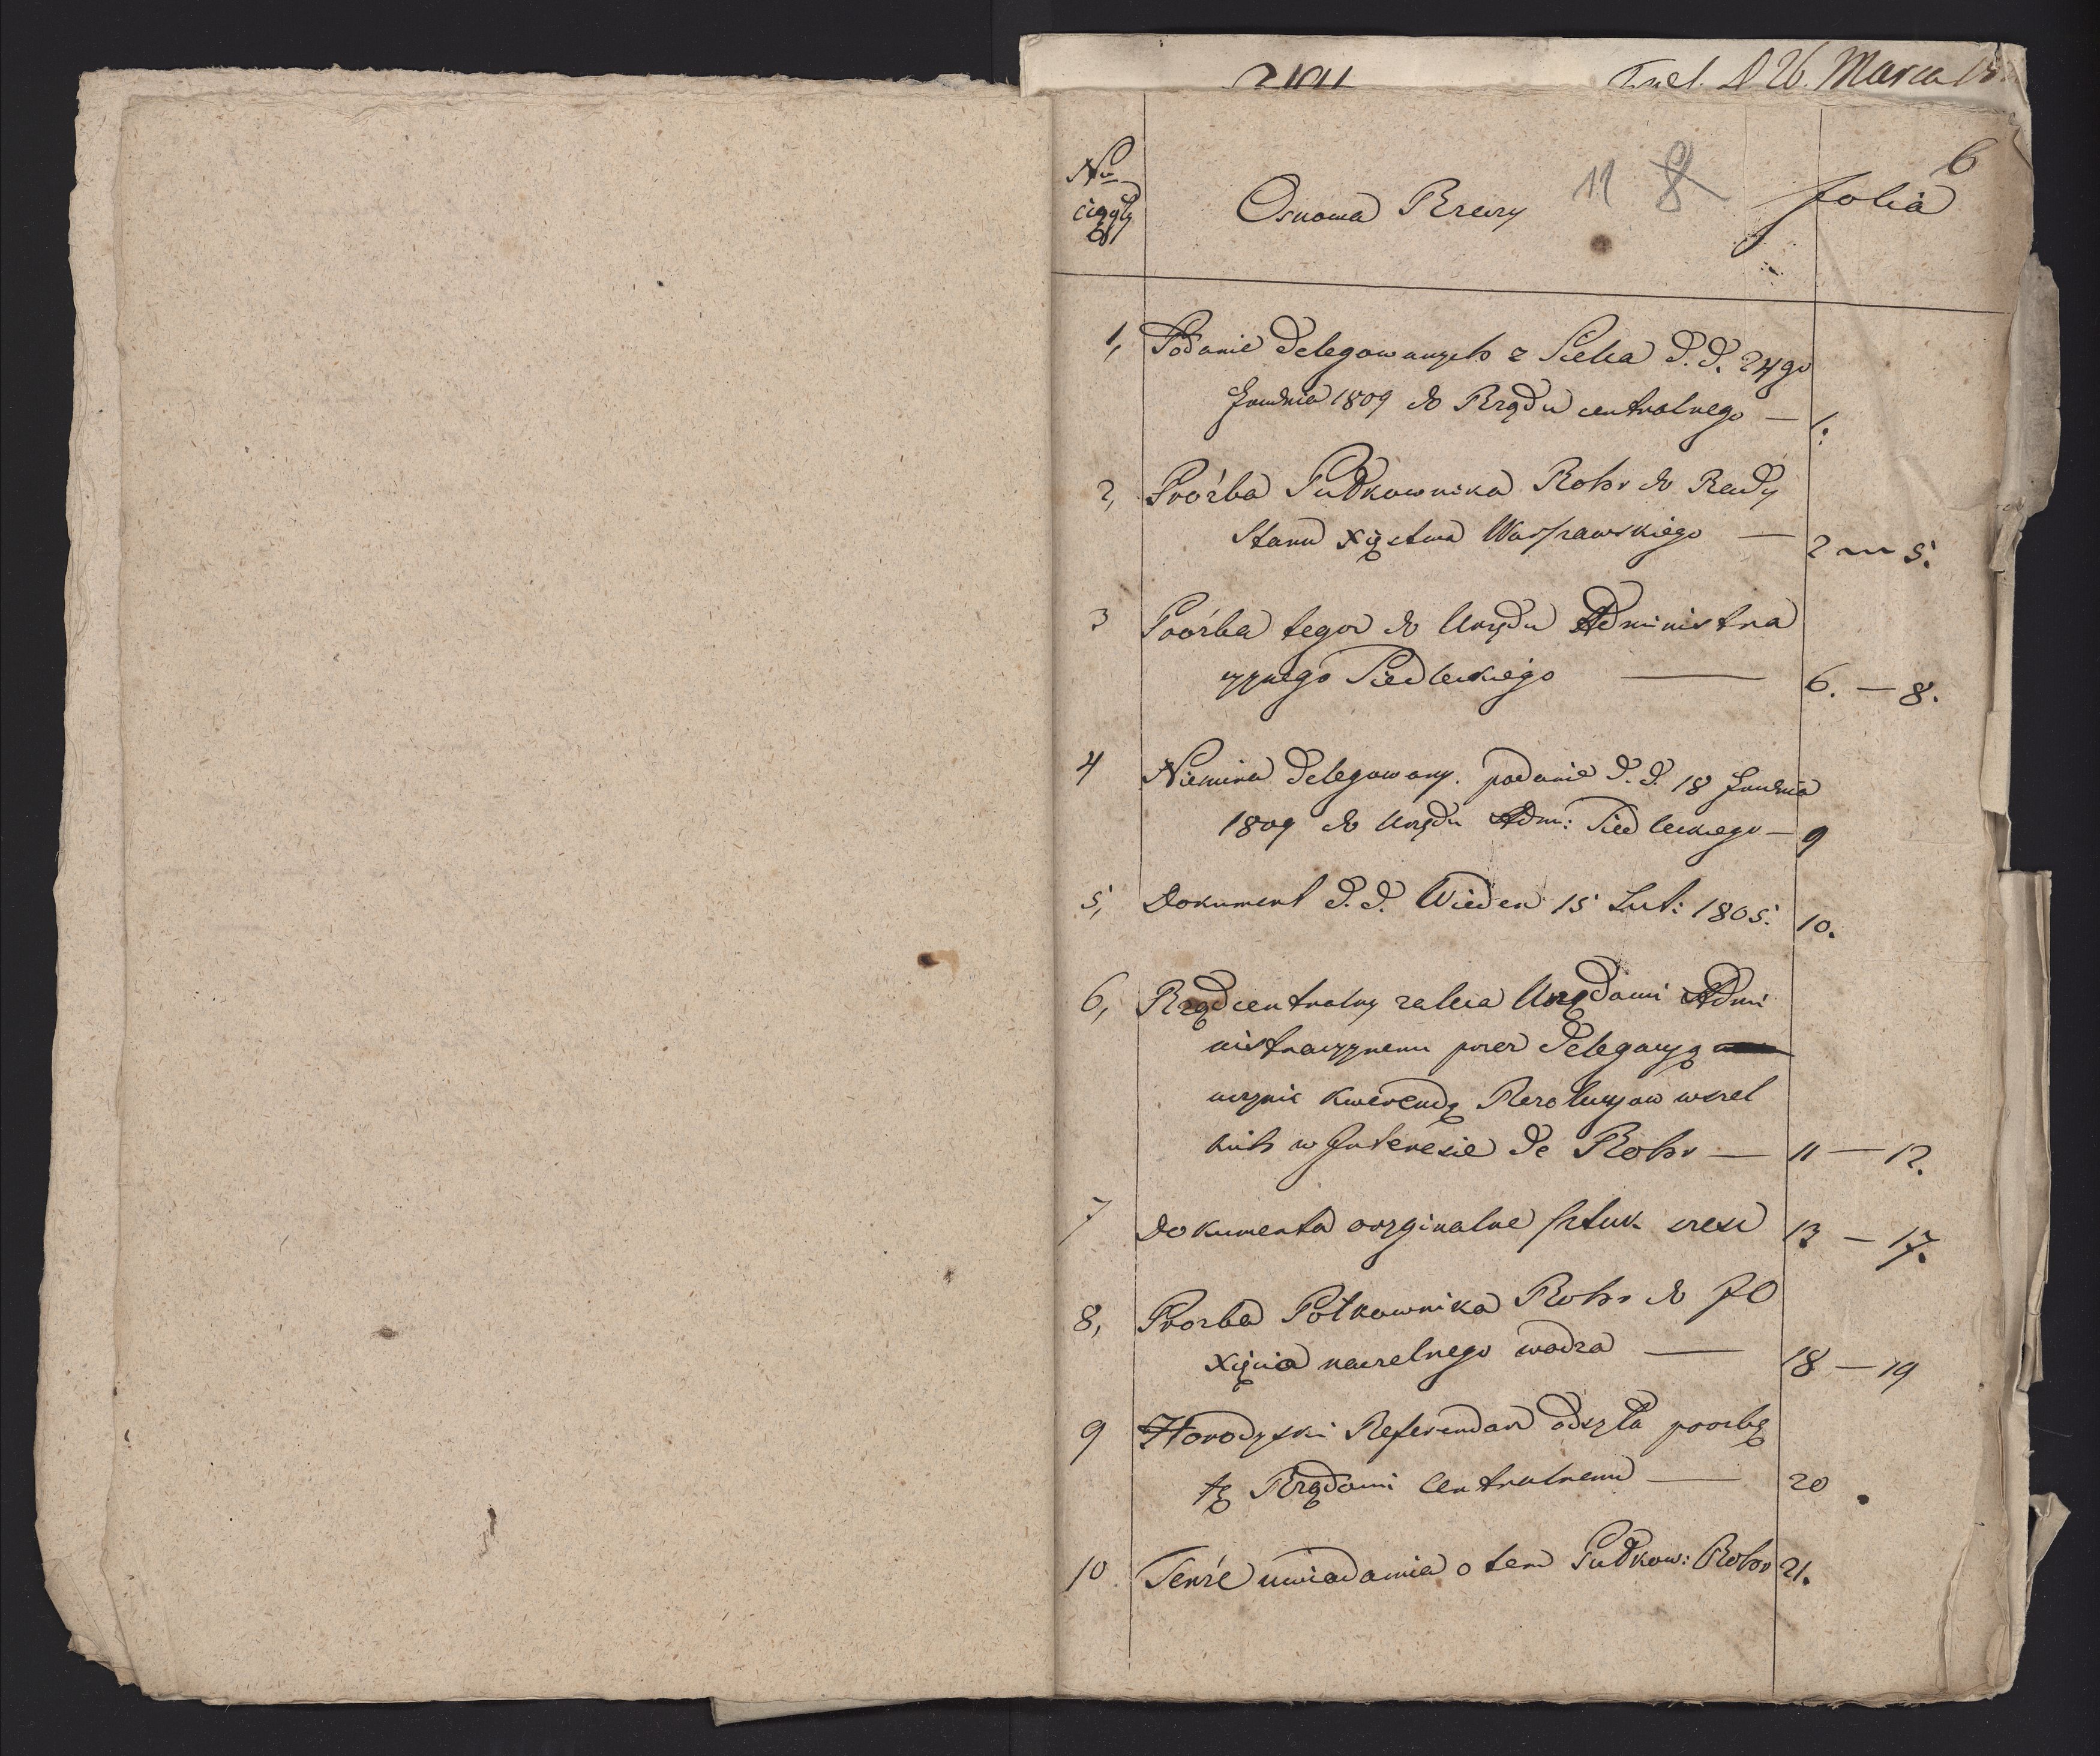 26. Marca
6
11 8
No ciągły
Osnowa Rzeczy
folia
1, Podanie Delegowanych z Sielca d.d. 24go
Grudnia 1809 do Rządu centralnego — 1.
2, Proźba Pułkownika Rohr do Rady
Stanu Xięstwa Warszawskiego — 2 — 5.
3 Proźba tegoż do Urzędu Administra
cyynego Siedleckiego — 6. — 8.
4 Niemira Delegowany. podanie d.d. 18 Grudnia
1809 do Urzędu Adm: Siedleckiego — 9
5, Dokument d.d. Wieden 15 Lut: 1805. 10.
6, Rząd centralny zaleca Urzędowi Admi
nistracyynemu przez Delegacyą
uczynić kwerendę Rezolucyow wszel
kich w Interesie de Rohr — 11 — 12.
7 Dokumenta oryginalne sztuk sześć 13 — 17.
8, Prozba Połkownika Rohr do JO
Xięcia naczelnego wodza — 18 — 19
9 Horodyski Referendarz odsyła proźbę
tę Rządowi Centralnemu — 20.
10. Tenże uwiadamia o tem Pułkow: Rohr 21.